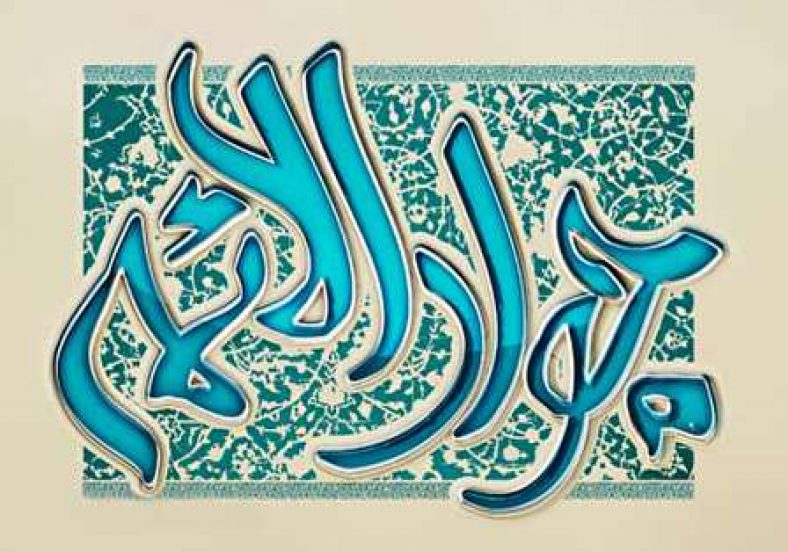 جواد الائمه